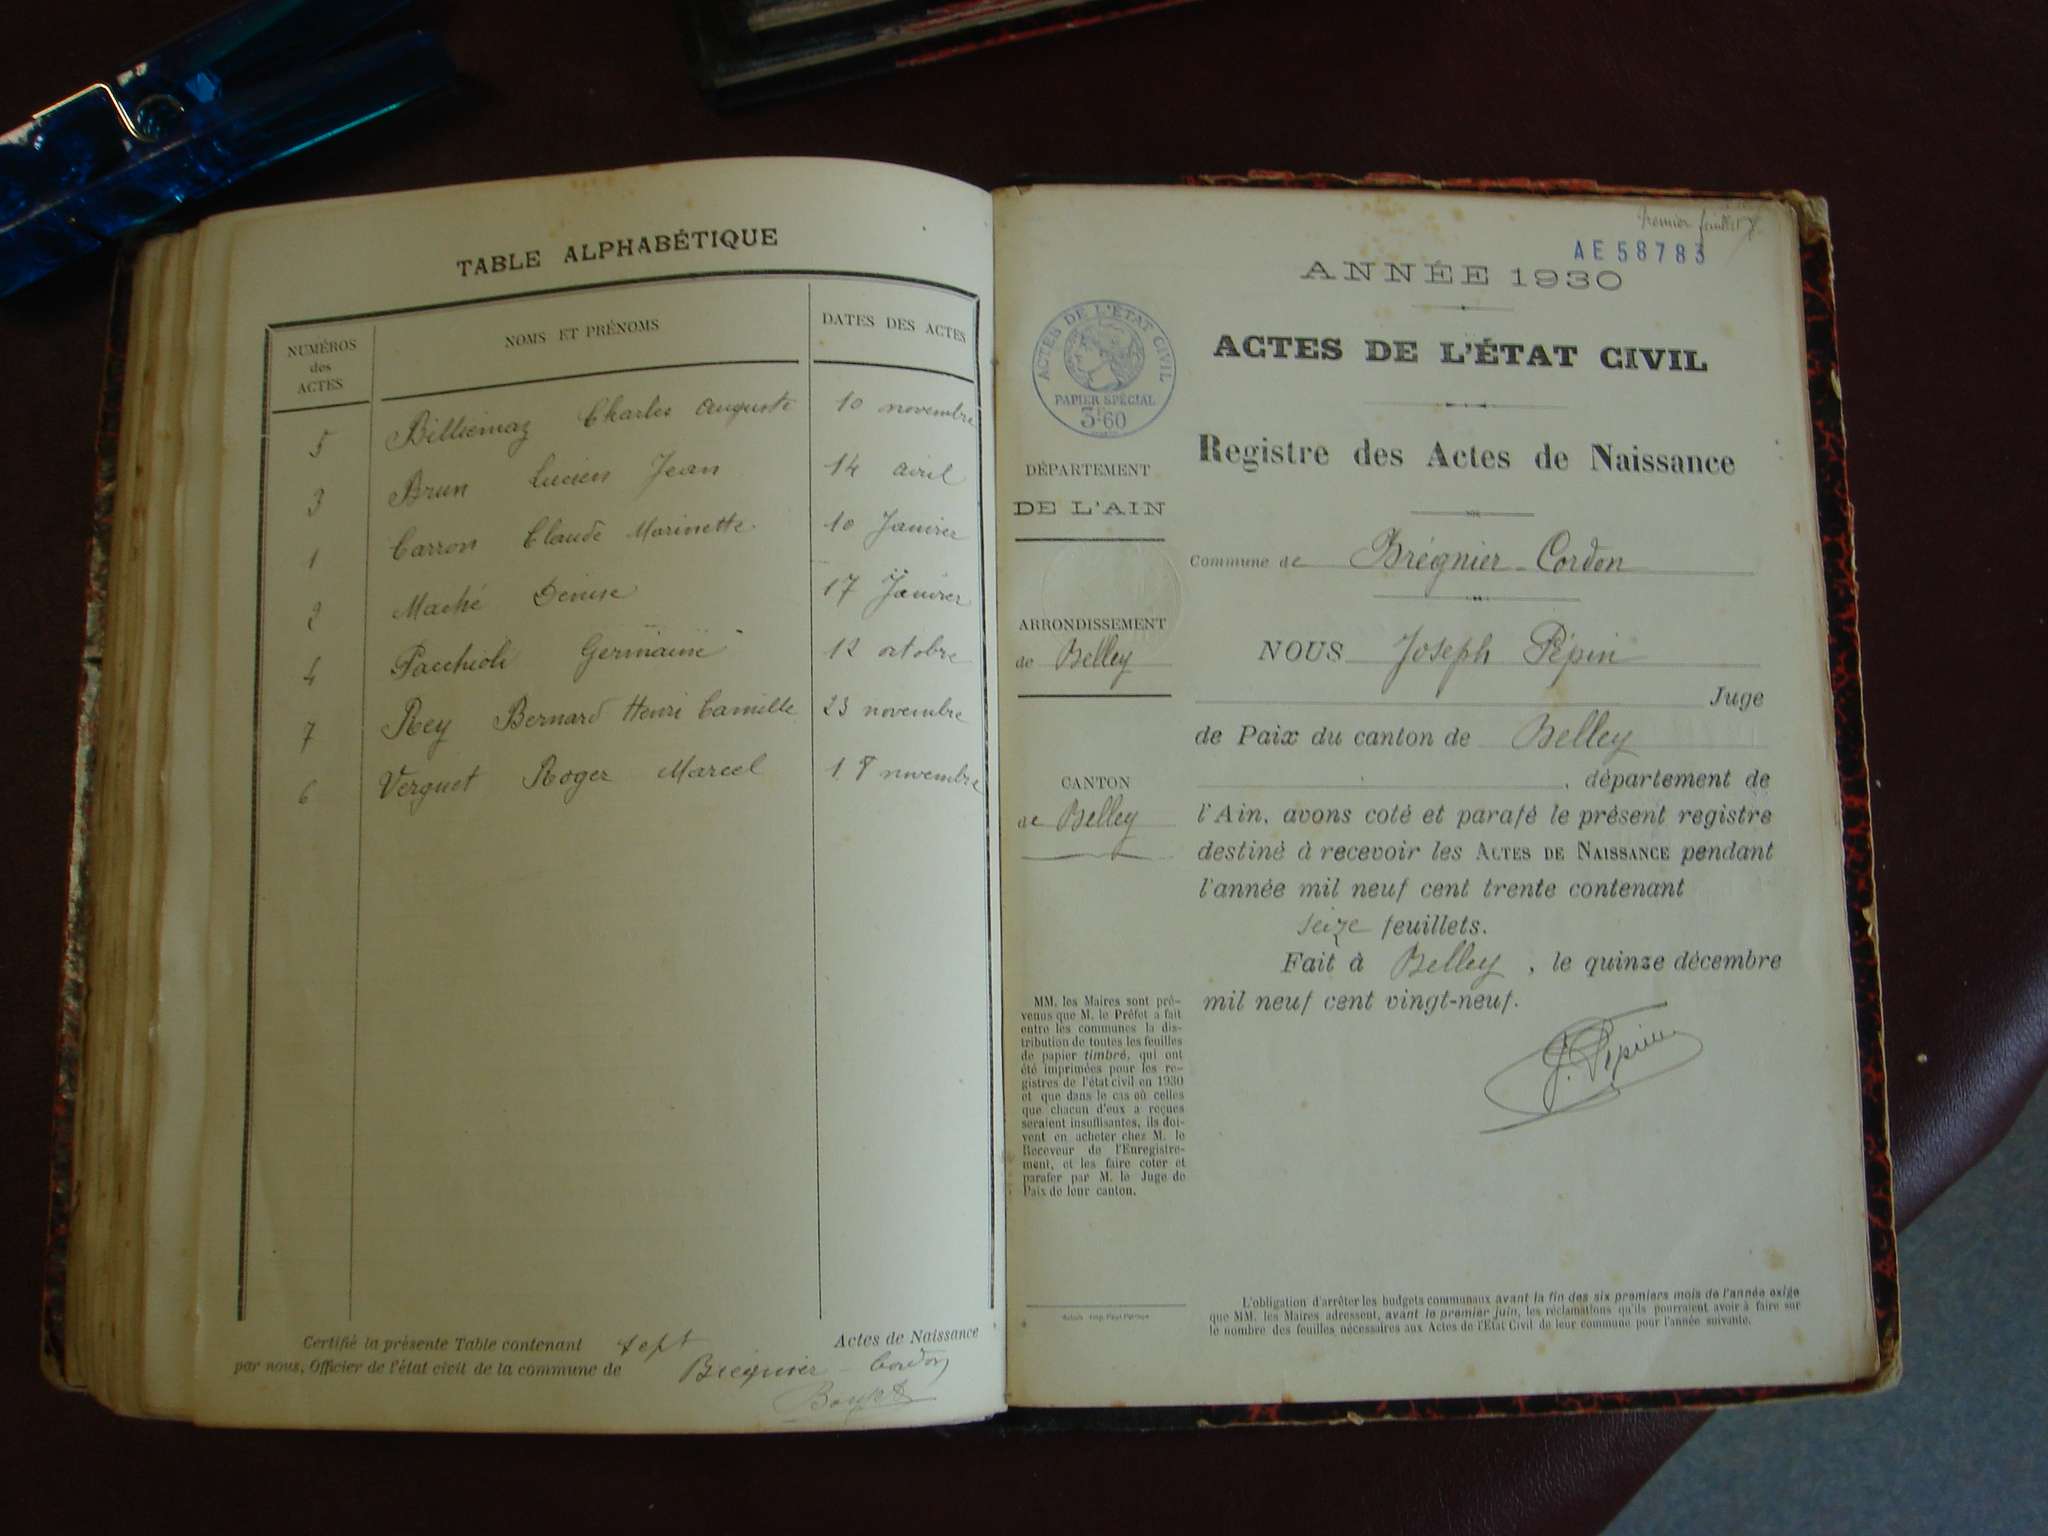 TABLE ALPHABÉTIQUE
NUMÉROS des ACTES NOMS ET PRÉNOMS DATES DES ACTES
5 Billiemaz Charles Auguste 10 novembre
3 Brun Lucien Jean 14 avril
1 Carron Claude Marinette 10 Janvier
2 Maché Denise 17 Janvier
4 Pacchioli Germaine 12 octobre
7 Rey Bernard Henri Camille 23 novembre
6 Verguet Roger Marcel 18 novembre
Certifié la présente Table contenant sept Actes de Naissance
par nous, Officier de l'état civil de la commune de Brégnier-Cordon
premier feuillet
AE 58783
ANNÉE 1930
ACTES DE L'ÉTAT CIVIL
PAPIER SPÉCIAL
3F60
ACTES DE L'ÉTAT CIVIL
Registre des Actes de Naissance
DÉPARTEMENT
DE L'AIN
Commune de Brégnier-Cordon
ARRONDISSEMENT
de Belley
CANTON
de Belley
NOUS Joseph Pépin
Juge
de Paix du canton de Belley
, département de
l'Ain, avons coté et parafé le présent registre
destiné à recevoir les ACTES DE NAISSANCE pendant
l'année mil neuf cent trente contenant
seize feuillets.
Fait à Belley, le quinze décembre
mil neuf cent vingt-neuf.
J. Pépin
MM. les Maires sont pré-
venus que M. le Préfet a fait
entre les communes la dis-
tribution de toutes les feuilles
de papier timbré, qui ont
été imprimées pour les re-
gistres de l'état civil en 1930
et que dans le cas où celles
que chacun d'eux a reçues
seraient insuffisantes, ils doi-
vent en acheter chez M. le
Receveur de l'Enregistre-
ment, et les faire coter et
parafer par M. le Juge de
Paix de leur canton.
L'obligation d'arrêter les budgets communaux avant la fin des six premiers mois de l'année exige
que MM. les Maires adressent, avant le premier juin, les réclamations qu'ils pourraient avoir à faire sur
le nombre des feuilles nécessaires aux Actes de l'Etat Civil de leur commune pour l'année suivante.